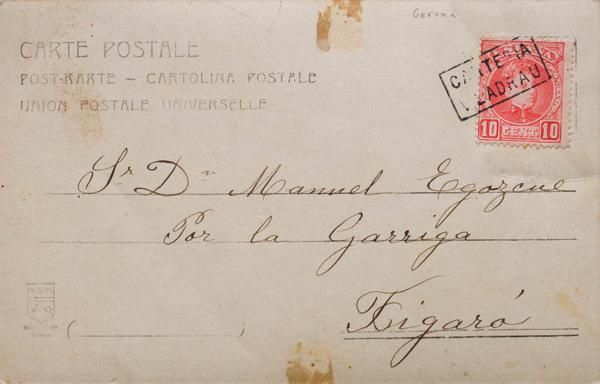 Gerona
CARTE POSTALE
POST-KARTE – CARTOLINA POSTALE
UNION POSTALE UNIVERSELLE
CARTERIA
VILADRAU
10 CENT. 10
Sr. Dn Manuel Egozcue
Por la Garriga
Figaró
( )